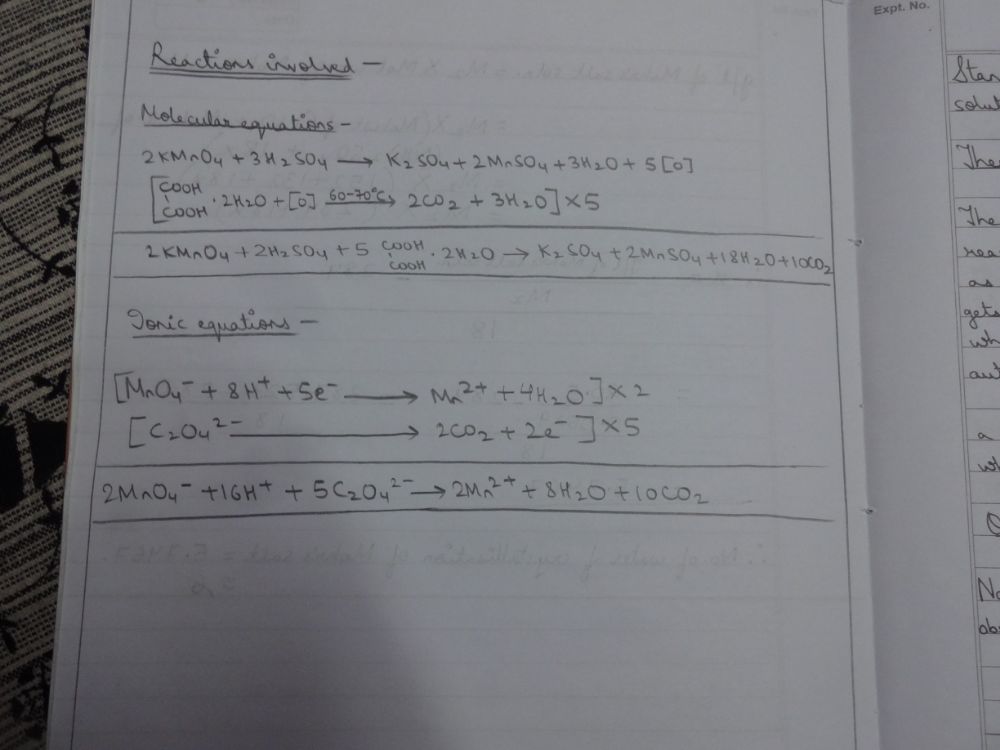 Expt. No.
Reactions involved –
Molecular equations –
2KMnO₄ + 3H₂SO₄ ⟶ K₂SO₄ + 2MnSO₄ + 3H₂O + 5[O]
[COOH
COOH · 2H₂O + [O] 60-70°C→ 2CO₂ + 3H₂O] × 5
2KMnO₄ + 2H₂SO₄ + 5 COOH
COOH · 2H₂O → K₂SO₄ + 2MnSO₄ + 18H₂O + 10CO₂
Ionic equations –
[MnO₄⁻ + 8H⁺ + 5e⁻ ⟶ Mn²⁺ + 4H₂O] × 2
[C₂O₄²⁻ ⟶ 2CO₂ + 2e⁻] × 5
2MnO₄⁻ + 16H⁺ + 5C₂O₄²⁻ → 2Mn²⁺ + 8H₂O + 10CO₂
Stan
solut
The
The
rea
as
gets
wh
aut
a
wh
No
obs